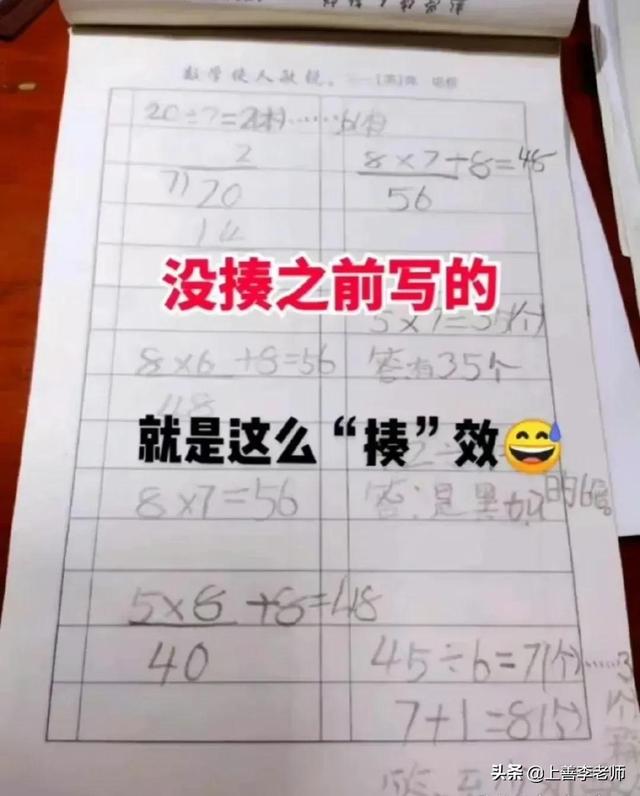 数学使人敏锐。
20÷7=2(本)……6(本)
2
7)20
14
8×7+8=48
56
没揍之前写的
5×7=35(个)
8×6+8=56
答有35个
48
就是这么“揍”效😅
8×7=56
答:是黑
的6倍
5×8+8=48
40
45÷6=7(个)……3
个
7+1=8(
头条@上善李老师